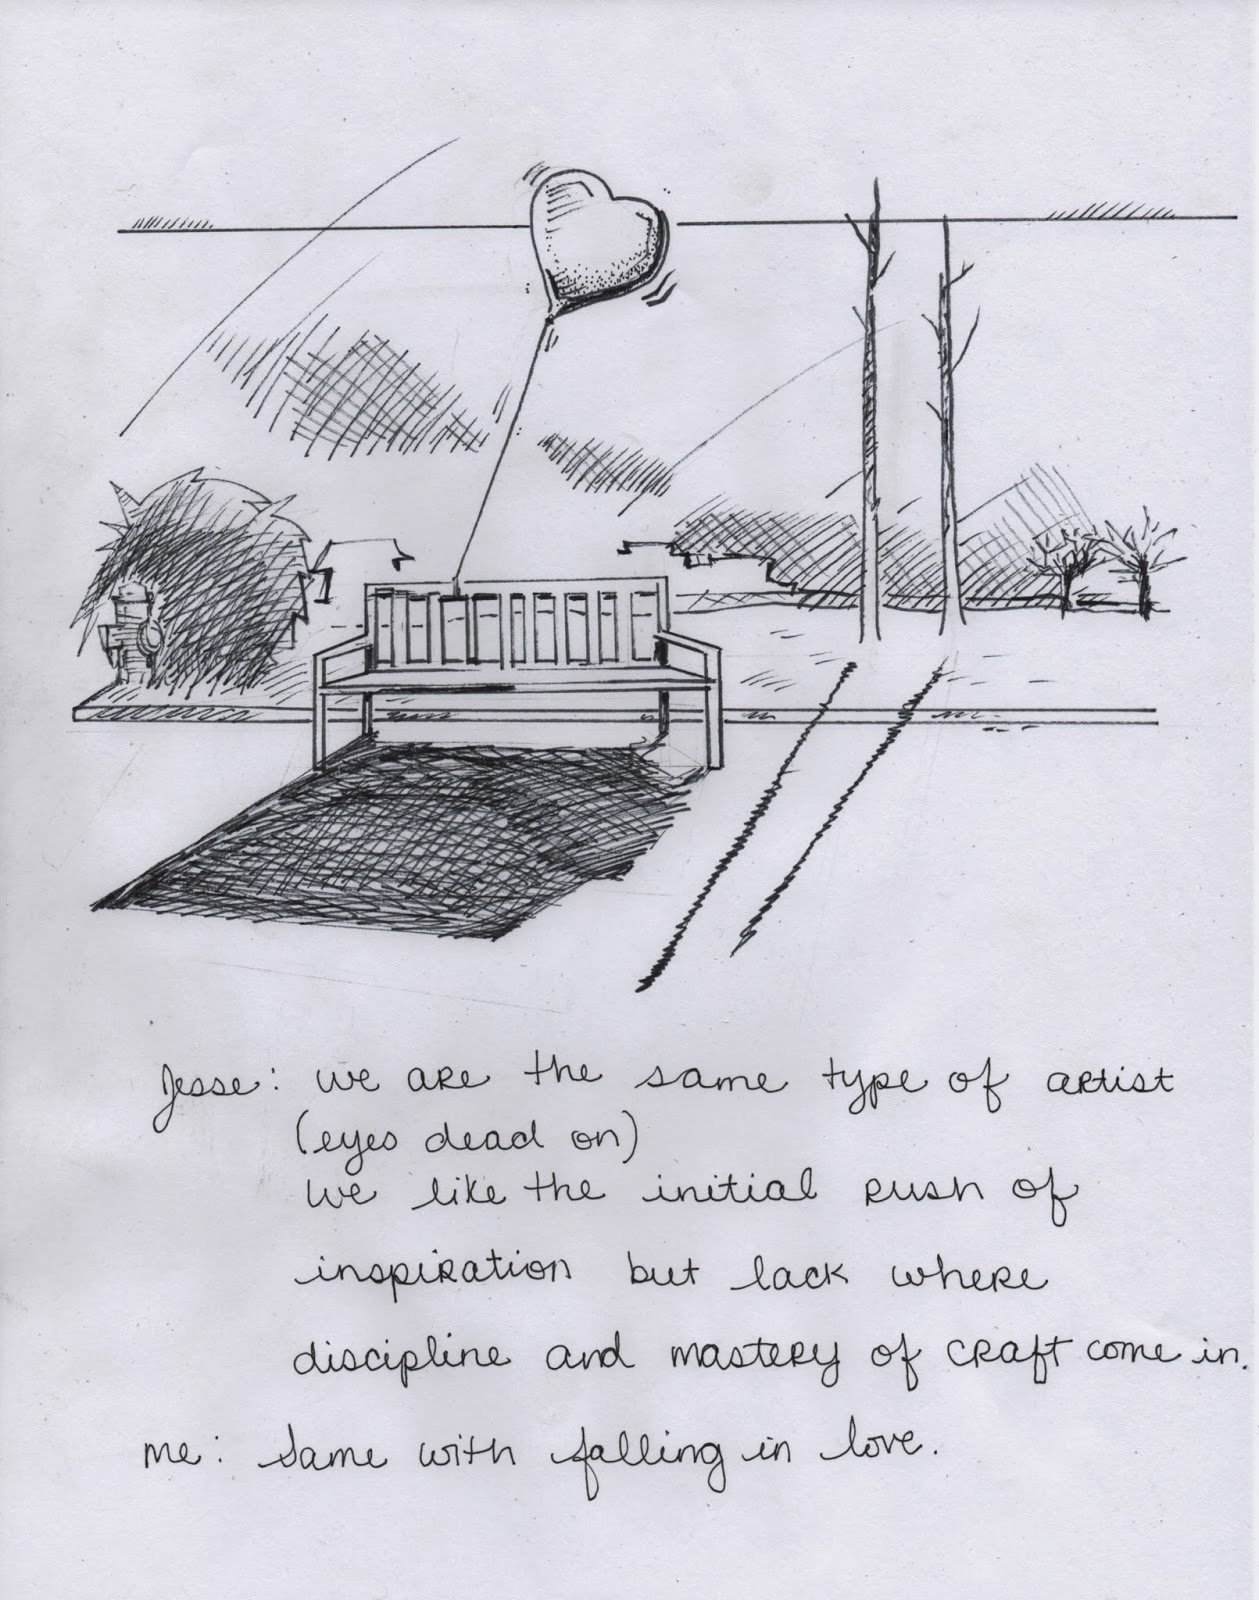 Jesse: we are the same type of artist
(eyes dead on)
we like the initial rush of
inspiration but lack where
discipline and mastery of craft come in.
me: Same with falling in love.